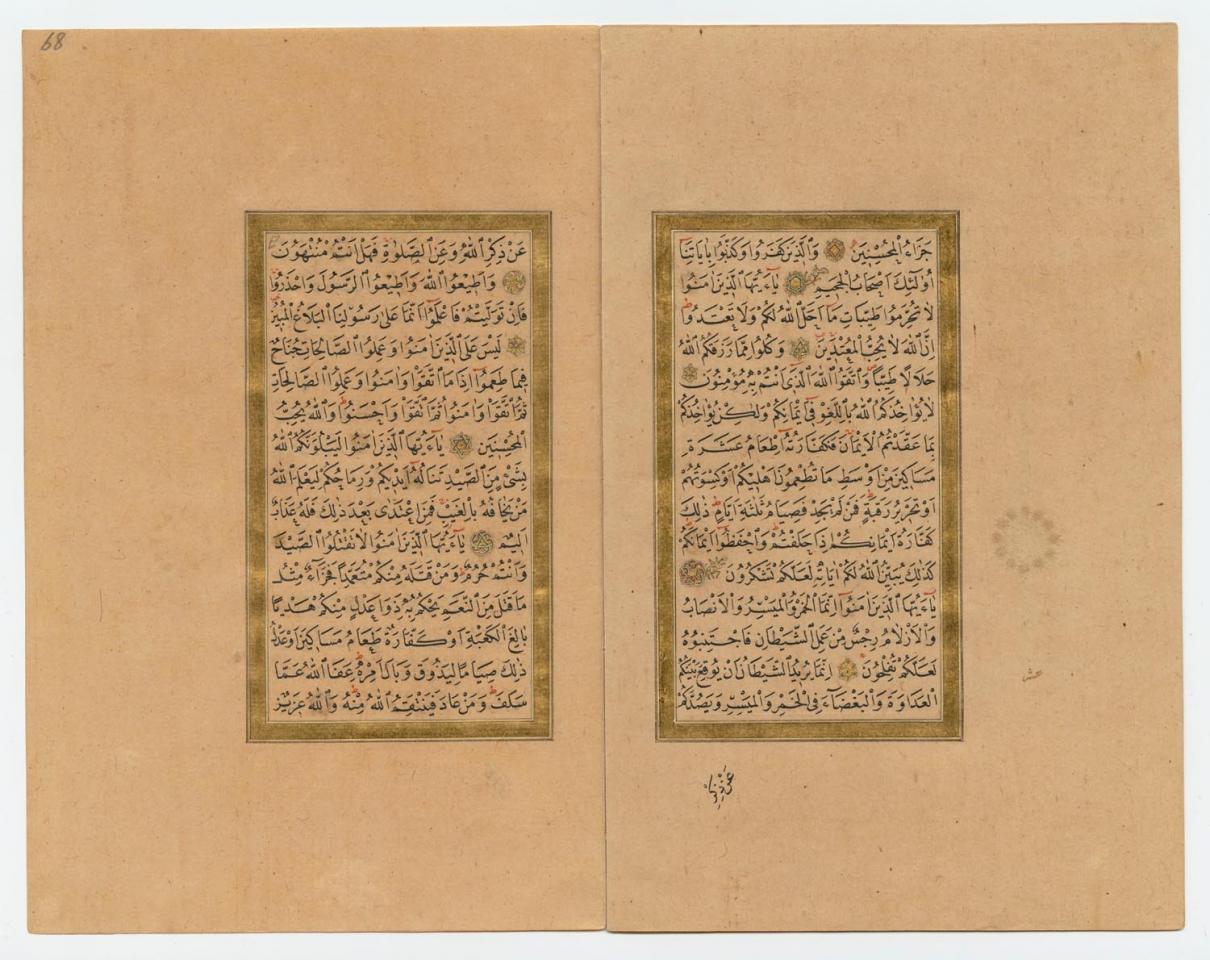 جَزَاءُ الْمُحْسِنِينَ وَالَّذِينَ كَفَرُوا وَكَذَّبُوا بِاٰيَاتِنَا
اُولٰئِكَ اَصْحَابُ الْجَحِيمِ يَاءَيُّهَا الَّذِينَ اٰمَنُوا
لَا تُحَرِّمُوا طَيِّبَاتِ مَا اَحَلَّ اللّٰهُ لَكُمْ وَلَا تَعْتَدُوا
اِنَّ اللّٰهَ لَا يُحِبُّ الْمُعْتَدِينَ وَكُلُوا مِمَّا رَزَقَكُمُ اللّٰهُ
حَلَالًا طَيِّبًا وَاتَّقُوا اللّٰهَ الَّذِى اَنْتُمْ بِهِ مُؤْمِنُونَ
لَا يُؤَاخِذُكُمُ اللّٰهُ بِاللَّغْوِ فِى اَيْمَانِكُمْ وَلٰكِنْ يُؤَاخِذُكُمْ
بِمَا عَقَّدْتُمُ الْاَيْمَانَ فَكَفَّارَتُهُ اِطْعَامُ عَشَرَةِ
مَسَاكِينَ مِنْ اَوْسَطِ مَا تُطْعِمُونَ اَهْلِيكُمْ اَوْ كِسْوَتُهُمْ
اَوْ تَحْرِيرُ رَقَبَةٍ فَمَنْ لَمْ يَجِدْ فَصِيَامُ ثَلٰثَةِ اَيَّامٍ ذٰلِكَ
كَفَّارَةُ اَيْمَانِكُمْ اِذَا حَلَفْتُمْ وَاحْفَظُوا اَيْمَانَكُمْ
كَذٰلِكَ يُبَيِّنُ اللّٰهُ لَكُمْ اٰيَاتِهِ لَعَلَّكُمْ تَشْكُرُونَ
يَاءَيُّهَا الَّذِينَ اٰمَنُوا اِنَّمَا الْخَمْرُ وَالْمَيْسِرُ وَالْاَنْصَابُ
وَالْاَزْلَامُ رِجْسٌ مِنْ عَمَلِ الشَّيْطَانِ فَاجْتَنِبُوهُ
لَعَلَّكُمْ تُفْلِحُونَ اِنَّمَا يُرِيدُ الشَّيْطَانُ اَنْ يُوقِعَ بَيْنَكُمُ
الْعَدَاوَةَ وَالْبَغْضَاءَ فِى الْخَمْرِ وَالْمَيْسِرِ وَيَصُدَّكُمْ
عَنْ ذِكْرِ
عشر
68
عَنْ ذِكْرِ اللّٰهِ وَعَنِ الصَّلٰوةِ فَهَلْ اَنْتُمْ مُنْتَهُونَ
وَاَطِيعُوا اللّٰهَ وَاَطِيعُوا الرَّسُولَ وَاحْذَرُوا
فَاِنْ تَوَلَّيْتُمْ فَاعْلَمُوا اَنَّمَا عَلٰى رَسُولِنَا الْبَلَاغُ الْمُبِينُ
لَيْسَ عَلَى الَّذِينَ اٰمَنُوا وَعَمِلُوا الصَّالِحَاتِ جُنَاحٌ
فِيمَا طَعِمُوا اِذَا مَا اتَّقَوْا وَاٰمَنُوا وَعَمِلُوا الصَّالِحَاتِ
ثُمَّ اتَّقَوْا وَاٰمَنُوا ثُمَّ اتَّقَوْا وَاَحْسَنُوا وَاللّٰهُ يُحِبُّ
الْمُحْسِنِينَ يَاءَيُّهَا الَّذِينَ اٰمَنُوا لَيَبْلُوَنَّكُمُ اللّٰهُ
بِشَىْءٍ مِنَ الصَّيْدِ تَنَالُهُ اَيْدِيكُمْ وَرِمَاحُكُمْ لِيَعْلَمَ اللّٰهُ
مَنْ يَخَافُهُ بِالْغَيْبِ فَمَنِ اعْتَدٰى بَعْدَ ذٰلِكَ فَلَهُ عَذَابٌ
اَلِيمٌ يَاءَيُّهَا الَّذِينَ اٰمَنُوا لَا تَقْتُلُوا الصَّيْدَ
وَاَنْتُمْ حُرُمٌ وَمَنْ قَتَلَهُ مِنْكُمْ مُتَعَمِّدًا فَجَزَاءٌ مِثْلُ
مَا قَتَلَ مِنَ النَّعَمِ يَحْكُمُ بِهِ ذَوَا عَدْلٍ مِنْكُمْ هَدْيًا
بَالِغَ الْكَعْبَةِ اَوْ كَفَّارَةٌ طَعَامُ مَسَاكِينَ اَوْ عَدْلُ
ذٰلِكَ صِيَامًا لِيَذُوقَ وَبَالَ اَمْرِهِ عَفَا اللّٰهُ عَمَّا
سَلَفَ وَمَنْ عَادَ فَيَنْتَقِمُ اللّٰهُ مِنْهُ وَاللّٰهُ عَزِيزٌ